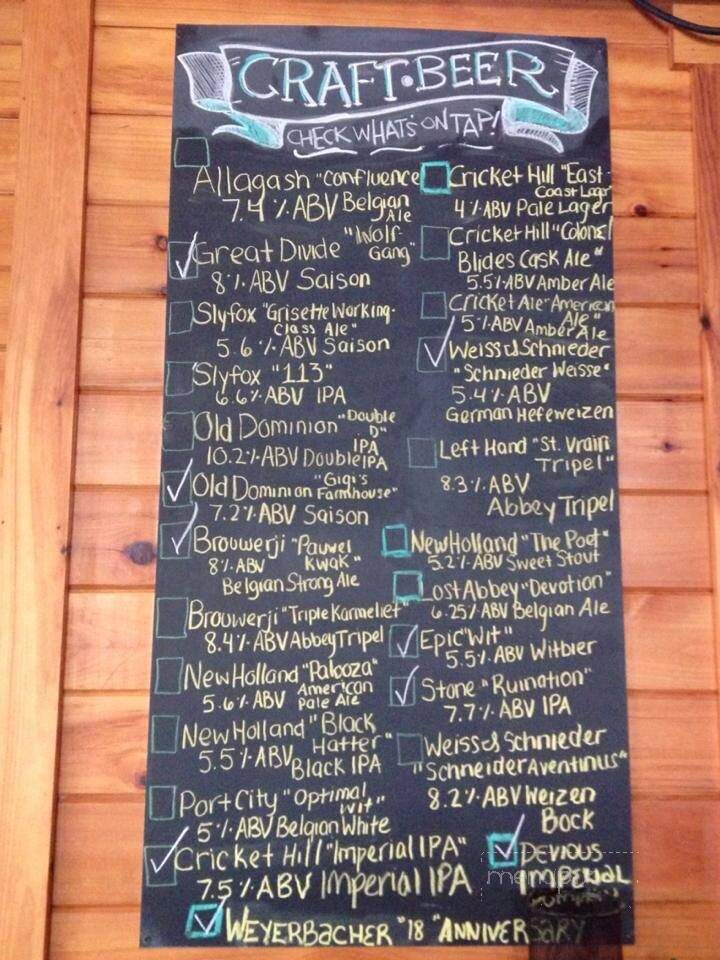 CRAFT·BEER
CHECK WHAT'S ON TAP!
Allagash "Confluence
7.4% ABV Belgian
Ale
Great Divide "Wolf-
Gang"
8% ABV Saison
Slyfox "Grisette Working-
Class Ale"
5.6% ABV Saison
Slyfox "113"
6.6% ABV IPA
Old Dominion "Double
D"
IPA
10.2% ABV Double IPA
Old Dominion "Gigi's
Farmhouse"
7.2% ABV Saison
Brouwerji "Pauwel
Kwak"
8% ABV
Belgian Strong Ale
Brouwerji "Triple Karmeliet"
8.4% ABV Abbey Tripel
New Holland "Palooza"
5.6% ABV American
Pale Ale
New Holland "Black
Hatter"
5.5% ABV Black IPA
Port City "Optimal
Wit"
5% ABV Belgian White
Cricket Hill "Imperial IPA"
7.5% ABV Imperial IPA
Cricket Hill "East-
Coast Lager"
4% ABV Pale Lager
Cricket Hill "Colonel
Blides Cask Ale"
5.5% ABV Amber Ale
Cricket Ale "American
Ale"
5% ABV Amber Ale
Weiss & Schnieder
"Schnieder Weisse"
5.4% ABV
German Hefeweizen
Left Hand "St. Vrain
Tripel"
8.3% ABV
Abbey Tripel
New Holland "The Poet"
5.2% ABV Sweet Stout
Lost Abbey "Devotion"
6.25% ABV Belgian Ale
Epic "Wit"
5.5% ABV Witbier
Stone "Ruination"
7.7% ABV IPA
Weiss & Schnieder
"Schneider Aventinus"
8.2% ABV Weizen
Bock
DEVIOUS
IMPERIAL
Pumpkin
WEYERBACHER "18" ANNIVERSARY